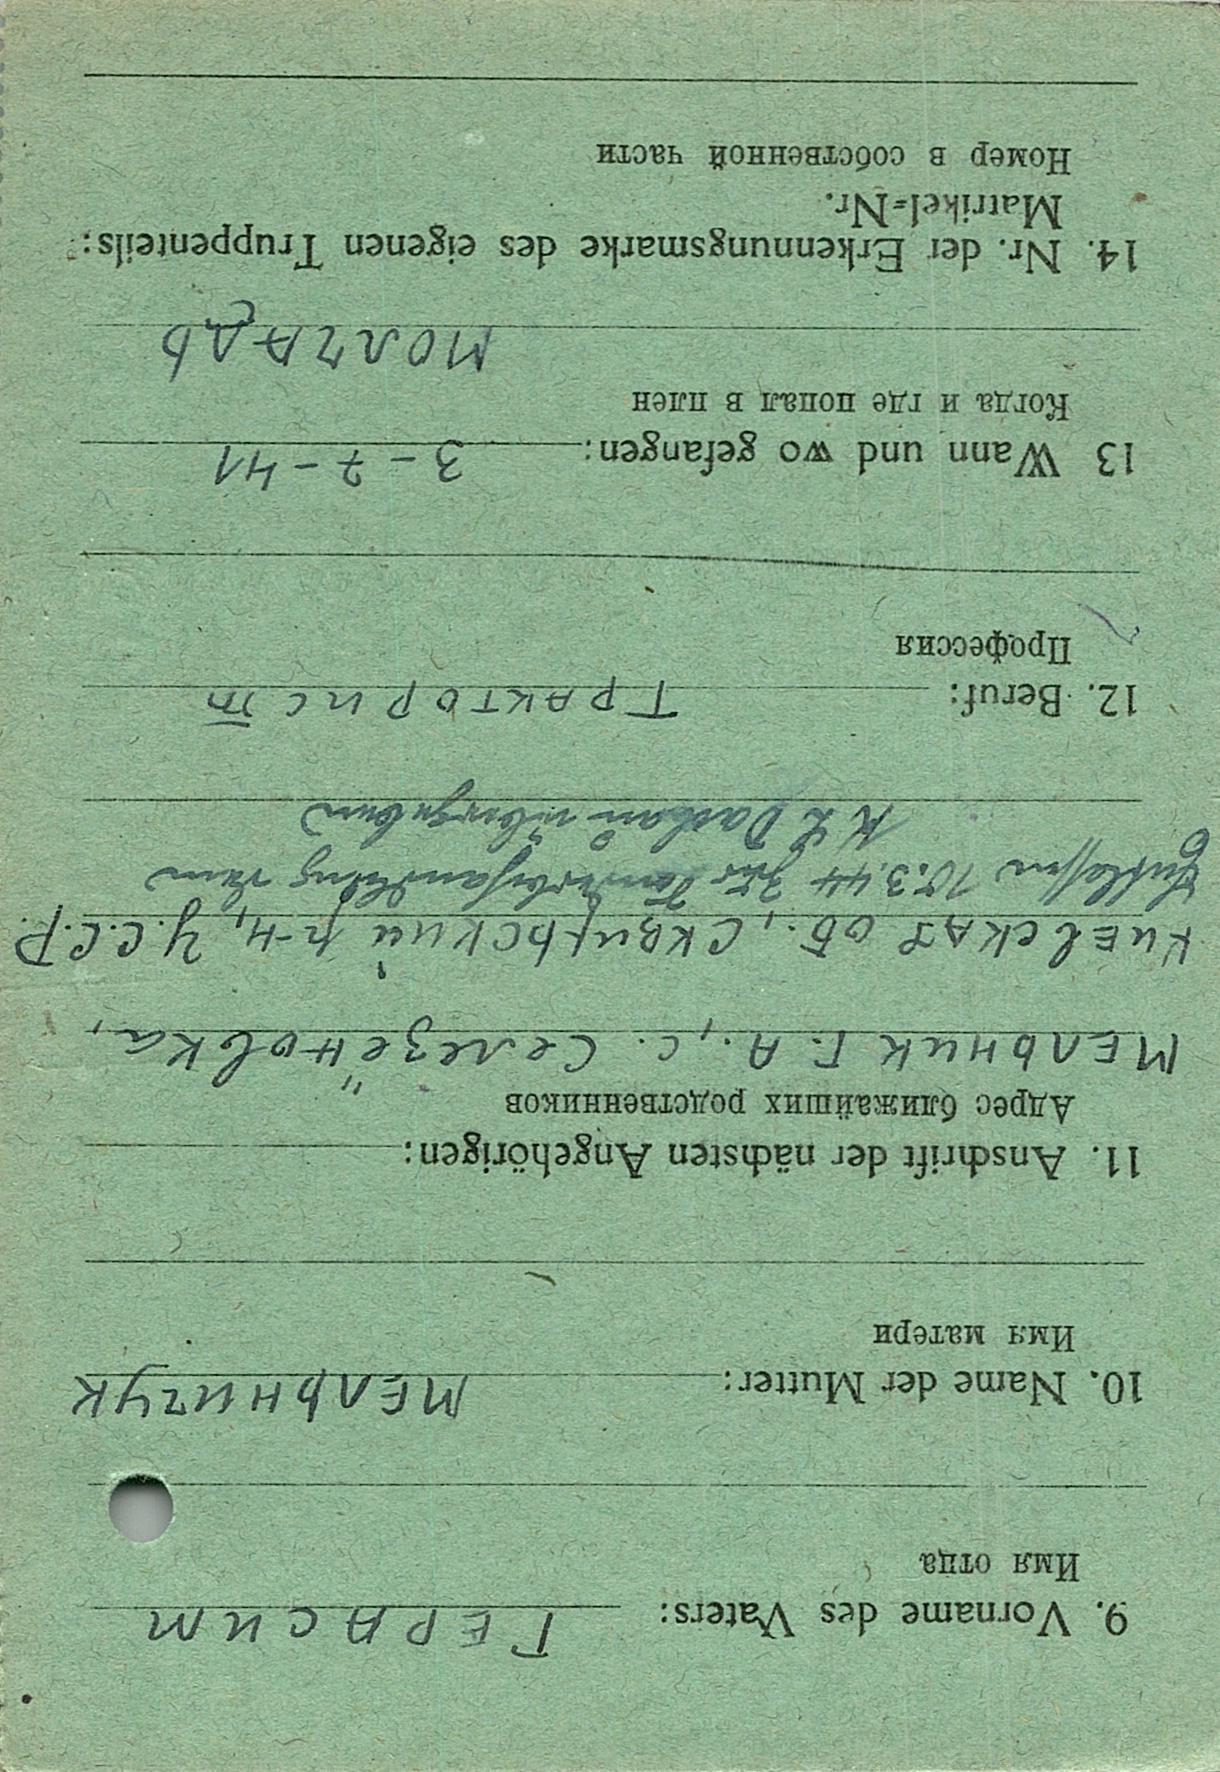 9. Vorname des Vaters: ГЕРАСИМ
Имя отца
10. Name der Mutter: МЕЛЬНИЧУК
Имя матери
11. Anschrift der nächsten Angehörigen:
Адрес ближайших родственников
МЕЛЬНИК Г. А., с. Селезёновка,
Киевская об., Сквирьский р-н, У.С.С.Р.
Entlassen 10.3.44 zur Sonderbehandlung dem
KL Dachau übergeben
12. Beruf: ТРАКТОРИСТ
Профессия
13 Wann und wo gefangen: 3-7-41
Когда и где попал в плен
МОЛЧАДЬ
14. Nr. der Erkennungsmarke des eigenen Truppenteils:
Matrikel=Nr.
Номер в собственной части